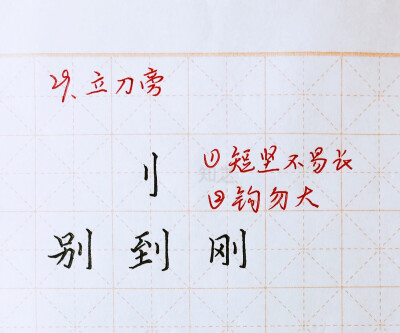 29、立刀旁
刂 ①短竖不易长
②钩勿大
别 到 刚